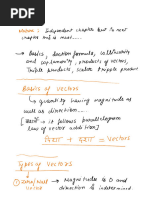 Vectors : Independent chapter but to next
chapter this is must.......
→ Basics, Section formula, collinearity
and coplanarity, products of vectors,
Triple products, scalar tripple product
Basics of Vectors
→ Quantity having magnitude as
well as direction...
[→ it follows parallelogram
law of vector addition]
दिशा + दशा = Vectors
Types of Vectors
Zero/Null vector → Magnitude is 0 and
direction is indetermined